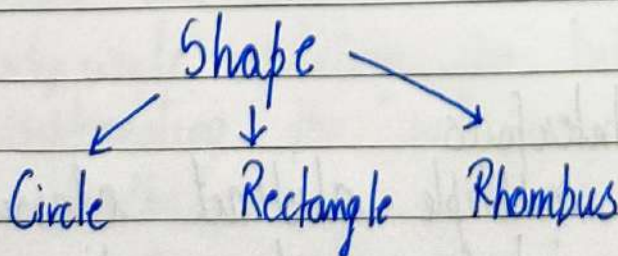 Shape
Circle Rectangle Rhombus